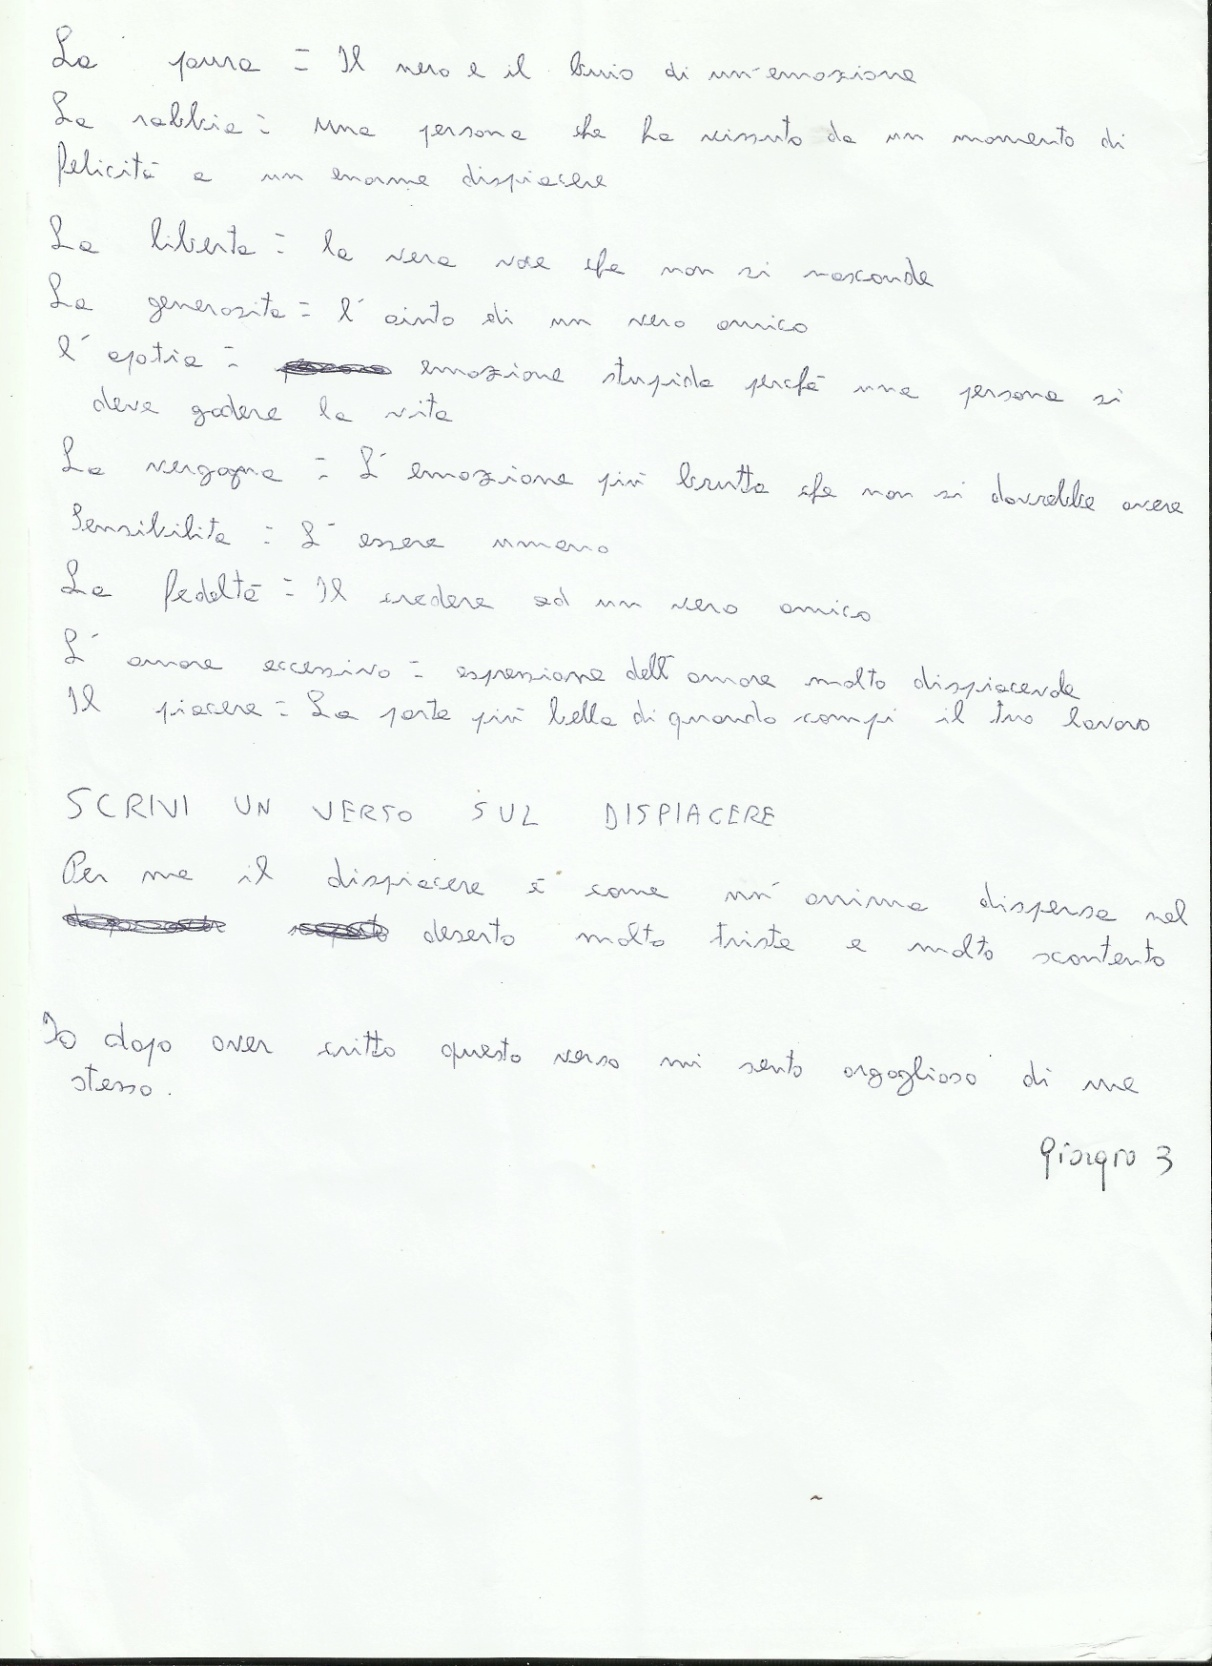 La paura = Il nero e il buio di un'emozione
La rabbia = una persona che ha vissuto da un momento di
felicità a un enorme dispiacere
La liberta = la vera voce che non si nasconde
La generosita = l'aiuto di un vero amico
l'apatia = emozione stupida perchè una persona si
deve godere la vita
La vergogna = L'emozione più brutta che non si dovrebbe avere
Sensibilita = L'essere umano
La fedeltà = Il credere ad un vero amico
L'amore eccessivo = espressione dell'amore molto dispiacevole
Il piacere = La parte più bella di quando compi il tuo lavoro
SCRIVI UN VERSO SUL DISPIACERE
Per me il dispiacere è come un'anima dispersa nel
deserto molto triste e molto scontento
Io dopo aver critto questo verso mi sento orgoglioso di me
stesso.
3